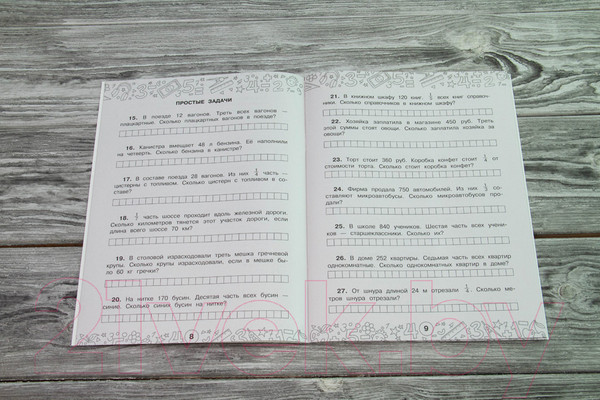 ПРОСТЫЕ ЗАДАЧИ
15. В поезде 12 вагонов. Треть всех вагонов —
плацкартные. Сколько плацкартных вагонов в поезде?
16. Канистра вмещает 48 л бензина. Её наполнили
на четверть. Сколько бензина в канистре?
17. В составе поезда 28 вагонов. Из них часть —
цистерны с топливом. Сколько цистерн с топливом в со-
ставе?
18. часть шоссе проходит вдоль железной дороги.
Сколько километров тянется этот участок дороги, если
длина всего шоссе 70 км?
19. В столовой израсходовали треть мешка гречневой
крупы. Сколько крупы израсходовали, если в мешке бы-
ло 60 кг гречки?
20. На нитке 170 бусин. Десятая часть всех бусин —
синие. Сколько синих бусин на нитке?
8
21. В книжном шкафу 120 книг, всех книг справоч-
ники. Сколько справочников в книжном шкафу?
22. Хозяйка заплатила в магазине 450 руб. Треть
этой суммы стоят овощи. Сколько заплатила хозяйка за
овощи?
23. Торт стоит 360 руб. Коробка конфет стоит от
стоимости торта. Сколько стоит коробка конфет?
24. Фирма продала 750 автомобилей. Из них со-
ставляют микроавтобусы. Сколько микроавтобусов про-
дали?
25. В школе 840 учеников. Шестая часть всех учени-
ков — старшеклассники. Сколько их?
26. В доме 252 квартиры. Седьмая часть всех квартир
однокомнатные. Сколько однокомнатных квартир в доме?
27. От шнура длиной 24 м отрезали Сколько ме-
тров шнура отрезали?
9